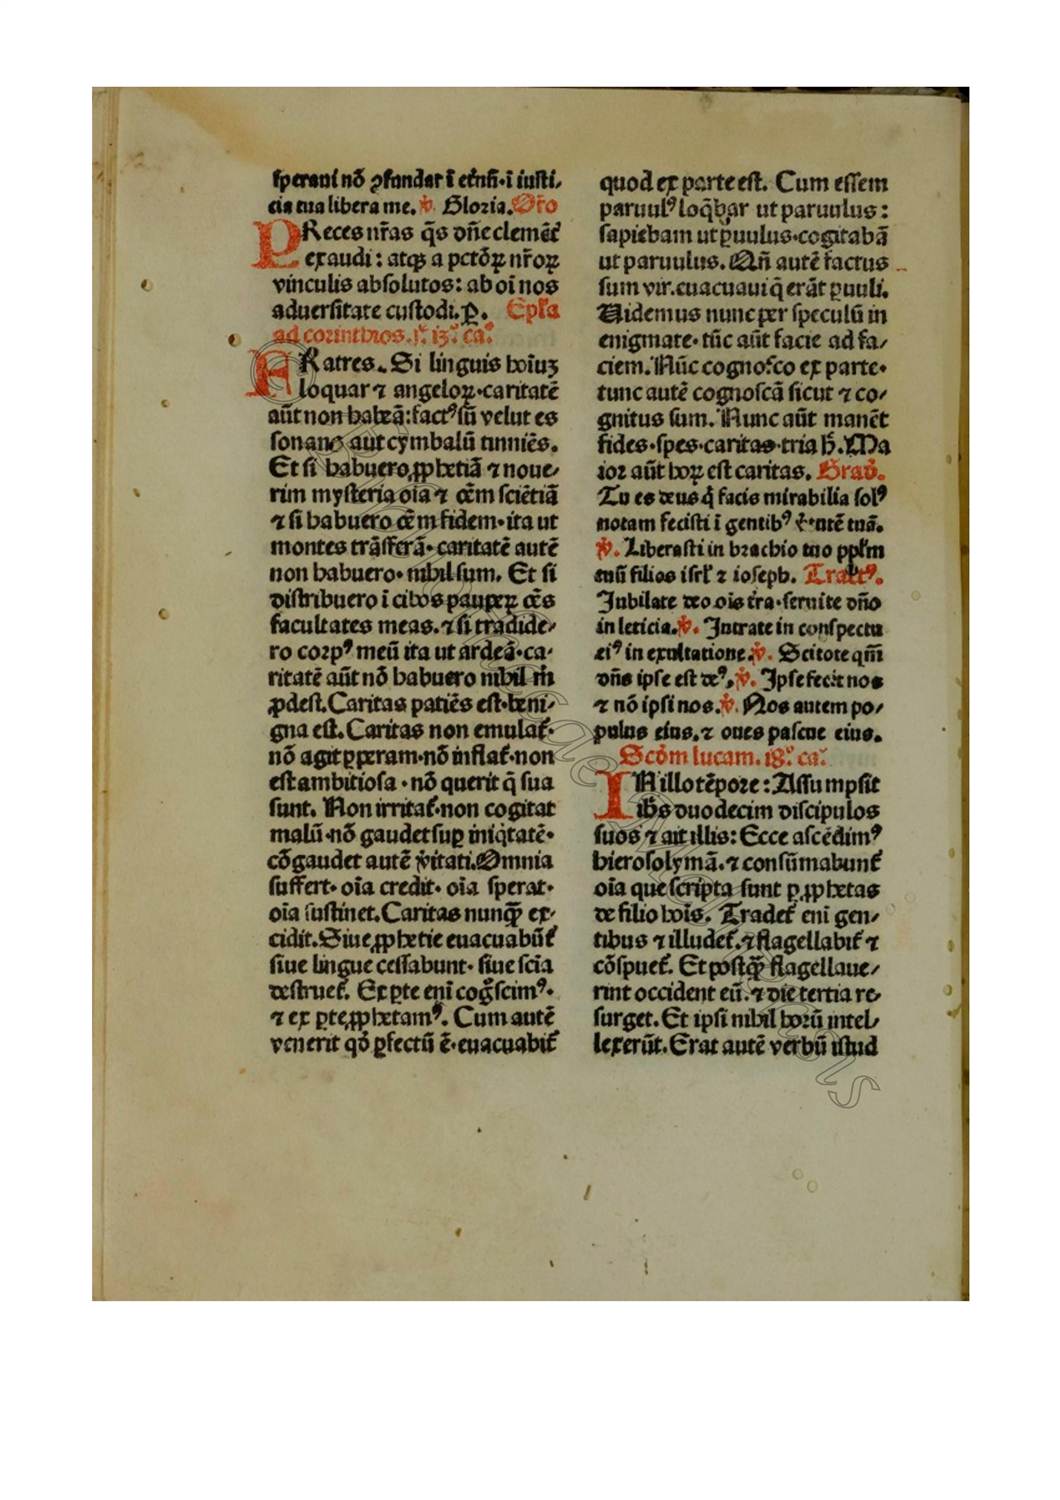 ſperaui nō ꝯfundar ī et̄nū·ī iuſti⸗
cia tua libera me. ℣. Gloria. Or̄o
PReces nr̄as q̄s dn̄e clemēt̄
exaudi: atqꝫ a pctōꝝ nr̄oꝝ
vinculis abſolutos: ab oī nos
aduerſitate cuſtodi. ꝑ. Epl̄a
ad corinthios. j. 13. ca.
FRatres. Si linguis hoīuꝫ
loquar ⁊ angeloꝝ·caritatē
aūt non habeā:factꝰ ſū velut es
ſonans aut cymbalū tinniēs.
Et ſi habuero ꝓphetiā ⁊ noue⸗
rim myſteria oīa ⁊ oēm ſciētiā
⁊ ſi habuero oēm fidem·ita ut
montes trāſferā·caritatē autē
non habuero·nihil ſum. Et ſi
diſtribuero ī cibos pauperꝝ oēs
facultates meas.⁊ ſi tradide⸗
ro corpꝰ meū ita ut ardeā·ca⸗
ritatē aūt nō habuero nihil m̄
ꝓdeſt. Caritas patiēs eſt·beni⸗
gna eſt. Caritas non emulat̄·
nō agit ꝑperam·nō inflat̄·non
eſt ambitioſa·nō querit q̄ ſua
ſunt. Non irritat̄·non cogitat
malū·nō gaudet ſuꝑ iniq̇tatē·
cōgaudet autē v̓itati. Omnia
ſuffert·oīa credit·oīa ſperat·
oīa ſuſtinet. Caritas nunqꝫ̄ ex⸗
cidit. Siue ꝓphetie euacuabūt̄
ſiue lingue ceſſabunt·ſiue ſcīa
deſtruet̄. Ex ꝑte enī cogͦſcimꝰ·
⁊ ex ꝑte ꝓphetamꝰ. Cum autē
venerit qͦd ꝑfectū ē·euacuabit̄
quod ex parte eſt. Cum eſſem
paruulꝰ loq̄bar ut paruulus:
ſapiebam ut ꝑuulus·cogitabā
ut paruulus. Qn̄ autē factus
ſum vir.euacuaui q̄ erāt ꝑuuli.
Uidemus nunc per ſpeculū in
enigmate·tūc aūt facie ad fa⸗
ciem. Nūc cognoſco ex parte·
tunc autē cognoſcā ſicut ⁊ co⸗
gnitus ſum. Nunc aūt manēt
fides·ſpes·caritas·tria h̄. Ma
ior aūt hoꝝ eſt caritas. Grad̄.
Tu es deus q̇ facis mirabilia ſolꝰ
notam feciſti ī gentibꝰ v̓tutē tuā.
℣. Liberaſti in brachio tuo ppl̄m
tuū filios iſrl̄ ⁊ ioſeph. Tractꝰ.
Jubilate deo oīs t̄ra·ſeruite dn̄o
in leticia. ℣. Intrate in conſpectu
eiꝰ in exultatione. ℣. Scitote qm̄
dn̄s ipſe eſt deꝰ. ℣. Ipſe fecit nos
⁊ nō ipſi nos. ℣. Nos autem po⸗
pulus eius.⁊ oues paſcue eius.
Scd̄m lucam. 18. ca.
IN illo tēpore: Aſſumpſit
ih̄s duodecim diſcipulos
ſuos ⁊ ait illis: Ecce aſcēdimꝰ
hieroſolymā.⁊ conſūmabunt̄
oīa que ſcripta ſunt ꝑ ꝓphetas
de filio hoīs. Tradet̄ enī gen⸗
tibus ⁊ illudet̄.⁊ flagellabit̄ ⁊
cōſpuet̄. Et poſtqꝫ̄ flagellaue⸗
rint occident eū.⁊ die tertia re⸗
ſurget. Et ipſi nihil horū intel⸗
lexerūt. Erat autē verbū iſtud